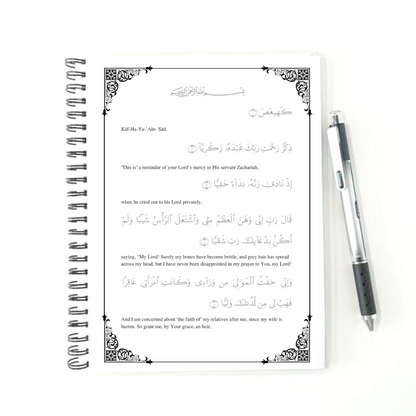 بِسْمِ اللَّهِ الرَّحْمَٰنِ الرَّحِيمِ
كٓهيعٓصٓ ١
Kãf-Ha-Ya-'Aĩn- Ṣãd.
ذِكْرُ رَحْمَتِ رَبِّكَ عَبْدَهُۥ زَكَرِيَّآ ٢
'This is' a reminder of your Lord's mercy to His servant Zachariah,
إِذْ نَادَىٰ رَبَّهُۥ نِدَآءً خَفِيًّا ٣
when he cried out to his Lord privately,
قَالَ رَبِّ إِنِّى وَهَنَ ٱلْعَظْمُ مِنِّى وَٱشْتَعَلَ ٱلرَّأْسُ شَيْبًا وَلَمْ
أَكُنۢ بِدُعَآئِكَ رَبِّ شَقِيًّا ٤
saying, "My Lord! Surely my bones have become brittle, and grey hair has spread
across my head, but I have never been disappointed in my prayer to You, my Lord!
وَإِنِّى خِفْتُ ٱلْمَوَٰلِىَ مِن وَرَآءِى وَكَانَتِ ٱمْرَأَتِى عَاقِرًا
فَهَبْ لِى مِن لَّدُنكَ وَلِيًّا ٥
And I am concerned about 'the faith of' my relatives after me, since my wife is
barren. So grant me, by Your grace, an heir,